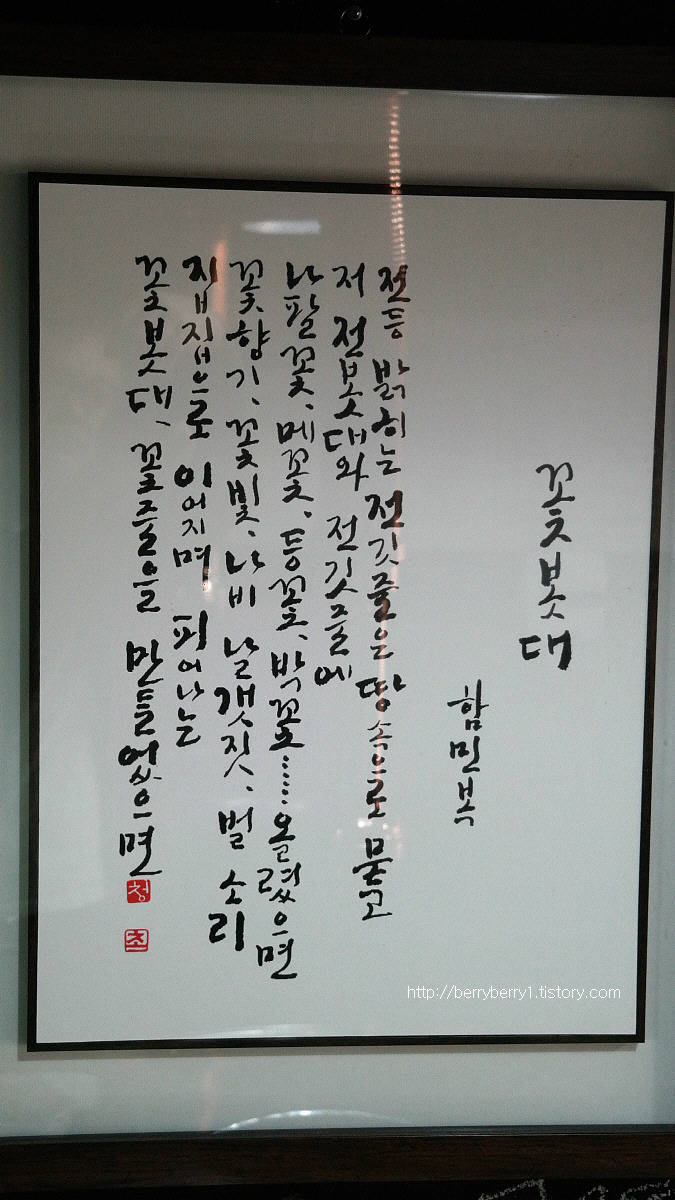 꽃봇대
함민복
전등 밝히는 전깃줄은 땅속으로 묻고
저 전봇대와 전깃줄에
나팔꽃, 메꽃, 등꽃, 박꽃…… 올렸으면
꽃향기, 꽃빛, 나비 날갯짓, 벌 소리
집집으로 이어지며 피어나는
꽃봇대, 꽃줄을 만들었으면
청
초
http://berryberry1.tistory.com